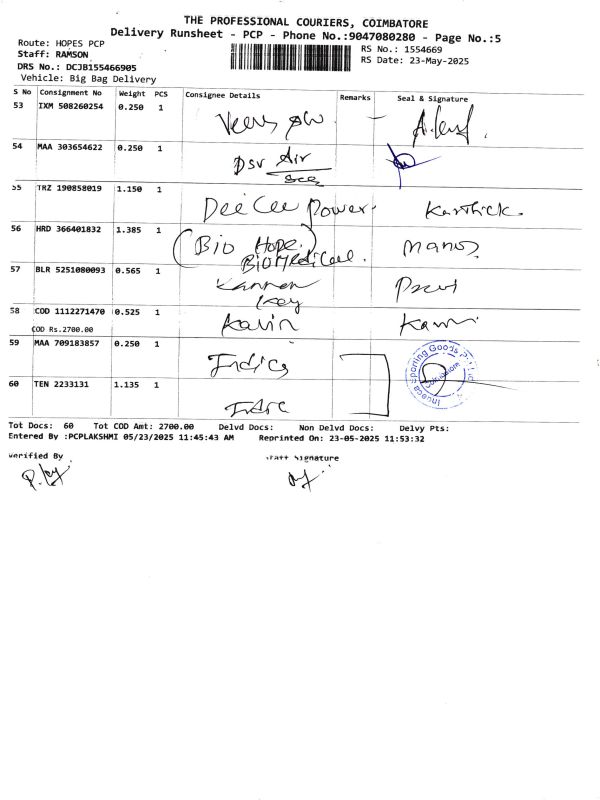 THE PROFESSIONAL COURIERS, COIMBATORE
Delivery Runsheet - PCP - Phone No.:9047080280 - Page No.:5
Route: HOPES PCP
RS No.: 1554669
Staff: RAMSON
RS Date: 23-May-2025
DRS No.: DCJB155466905
Vehicle: Big Bag Delivery
S No Consignment No Weight PCS Consignee Details Remarks Seal & Signature
53 IXM 508260254 0.250 1
54 MAA 303654622 0.250 1 Dsv Air
55 TRZ 190858019 1.150 1 Dee Cee Power. Karthick.
56 HRD 366401832 1.385 1 (Bio Hope.) Manoj
BIOMedical.
57 BLR 5251080093 0.565 1 Kannan
58 COD 1112271470 0.525 1 Kavin
COD Rs.2700.00
59 MAA 709183857 0.250 1
60 TEN 2233131 1.135 1
Tot Docs: 60 Tot COD Amt: 2700.00 Delvd Docs: Non Delvd Docs: Delvy Pts:
Entered By :PCPLAKSHMI 05/23/2025 11:45:43 AM Reprinted On: 23-05-2025 11:53:32
Verified By Staff Signature